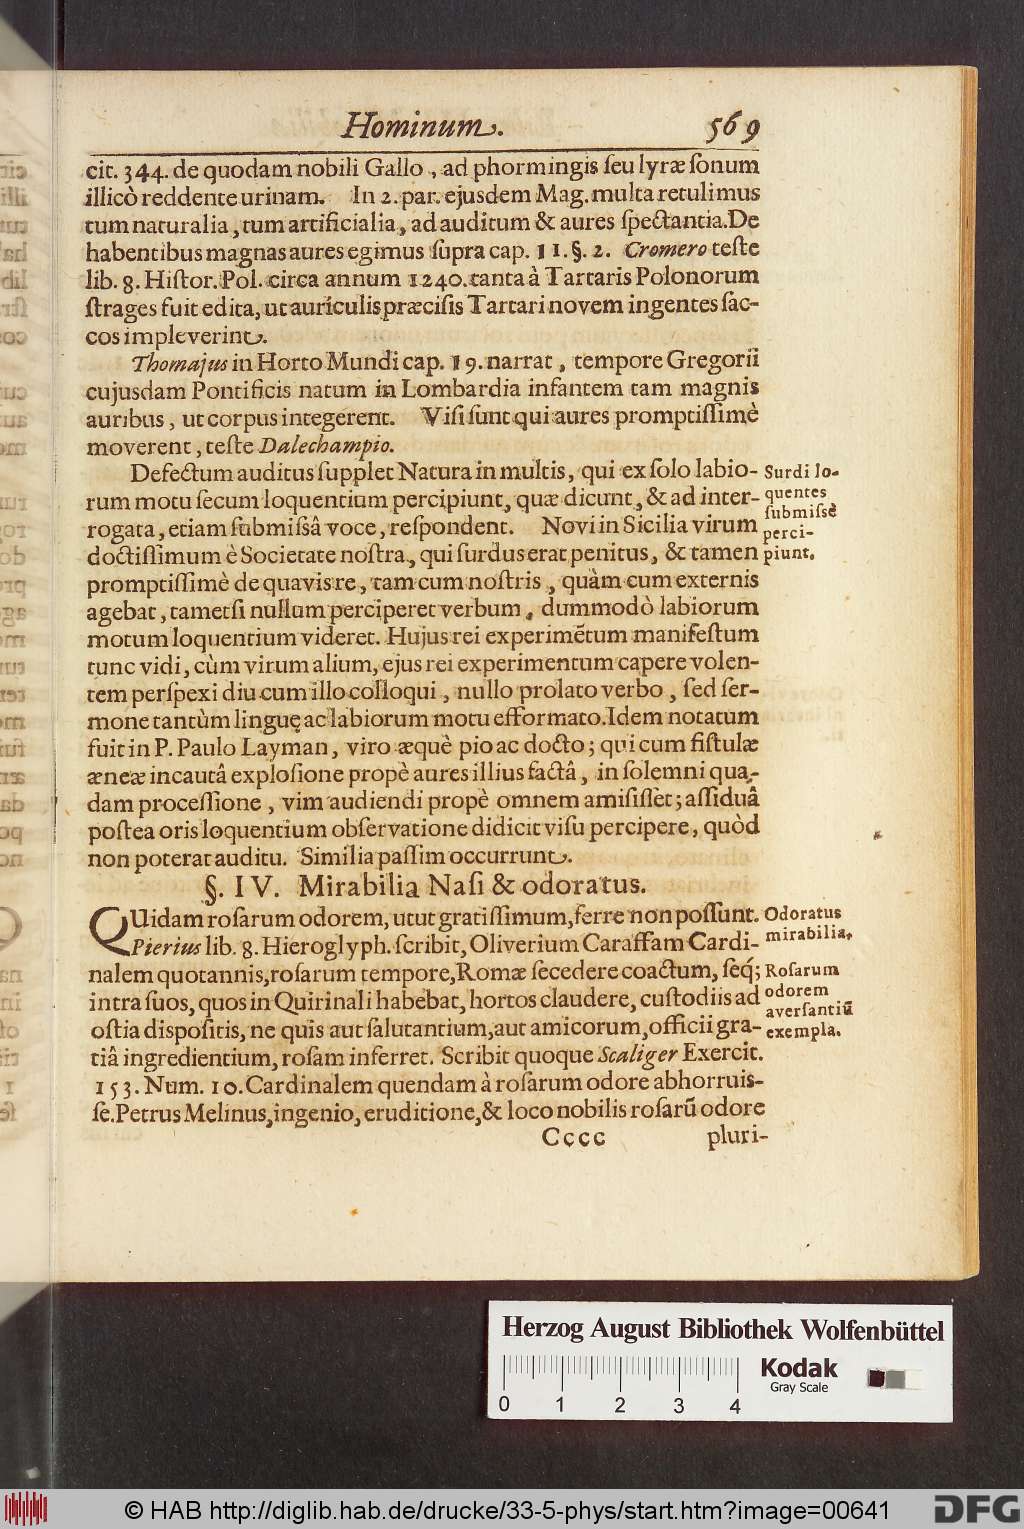 Hominum. 569
cit. 344. de quodam nobili Gallo, ad phormingis ſeu lyræ ſonum
illicò reddente urinam. In 2. par. ejusdem Mag. multa retulimus
tum naturalia, tum artificialia, ad auditum & aures ſpectantia. De
habentibus magnas aures egimus ſupra cap. 11. §. 2. Cromero teſte
lib. 8. Hiſtor. Pol. circa annum 1240. tanta à Tartaris Polonorum
ſtrages fuit edita, ut auriculis præciſis Tartari novem ingentes ſac-
cos impleverint.
Thomajus in Horto Mundi cap. 19. narrat, tempore Gregorii
cujusdam Pontificis natum in Lombardia infantem tam magnis
auribus, ut corpus integerent. Viſi ſunt qui aures promptiſſimè
moverent, teſte Dalechampio.
Defectum auditus ſupplet Natura in multis, qui ex ſolo labio-
rum motu ſecum loquentium percipiunt, quæ dicunt, & ad inter-
rogata, etiam ſubmiſsâ voce, reſpondent. Novi in Sicilia virum
doctiſſimum è Societate noſtra, qui ſurdus erat penitus, & tamen
promptiſſimè de quavis re, tam cum noſtris, quàm cum externis
agebat, tametſi nullum perciperet verbum, dummodò labiorum
motum loquentium videret. Hujus rei experimẽtum manifeſtum
tunc vidi, cùm virum alium, ejus rei experimentum capere volen-
tem perſpexi diu cum illo colloqui, nullo prolato verbo, ſed ſer-
mone tantùm linguę ac labiorum motu efformato. Idem notatum
fuit in P. Paulo Layman, viro æquè pio ac docto; qui cum fiſtulæ
æneæ incautâ exploſione propè aures illius factâ, in ſolemni qua-
dam proceſſione, vim audiendi propè omnem amiſiſſet; aſſiduâ
poſtea oris loquentium obſervatione didicit viſu percipere, quòd
non poterat auditu. Similia paſſim occurrunt.
Surdi lo-
quentes
ſubmiſsè
perci-
piunt.
§. IV. Mirabilia Naſi & odoratus.
QUidam roſarum odorem, utut gratiſſimum, ferre non poſſunt.
Pierius lib. 8. Hieroglyph. ſcribit, Oliverium Caraffam Cardi-
nalem quotannis, roſarum tempore, Romæ ſecedere coactum, ſeq́;
intra ſuos, quos in Quirinali habebat, hortos claudere, cuſtodiis ad
oſtia diſpoſitis, ne quis aut ſalutantium, aut amicorum, officii gra-
tiâ ingredientium, roſam inferret. Scribit quoque Scaliger Exercit.
153. Num. 10. Cardinalem quendam à roſarum odore abhorruiſ-
ſe. Petrus Melinus, ingenio, eruditione, & loco nobilis roſarũ odore
Odoratus
mirabilia.
Roſarum
odorem
averſantiũ
exempla.
Cccc pluri-
Herzog August Bibliothek Wolfenbüttel
Kodak
Gray Scale
0 1 2 3 4
© HAB http://diglib.hab.de/drucke/33-5-phys/start.htm?image=00641
DFG